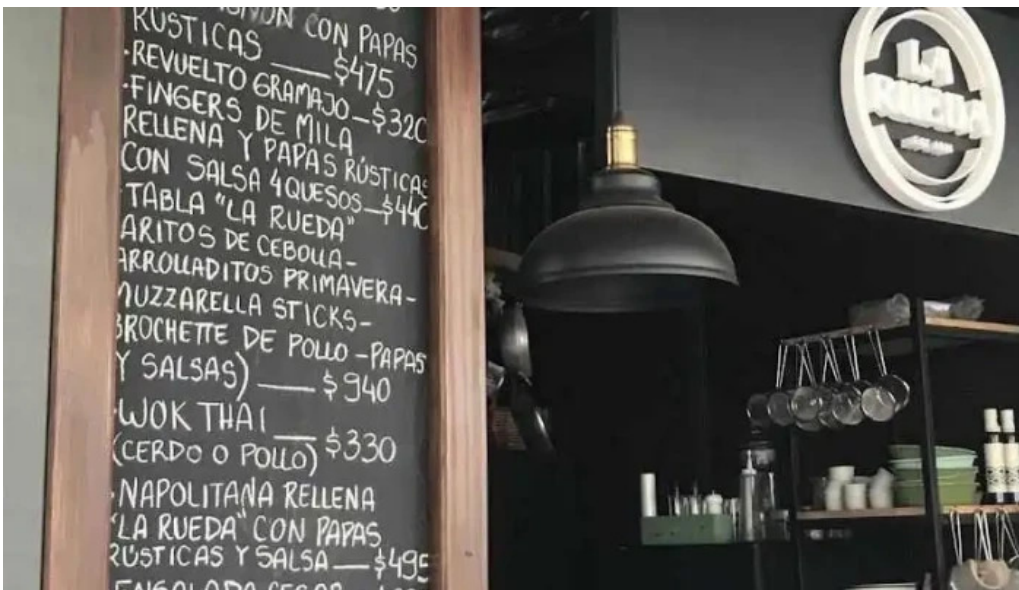 CON PAPAS
RÚSTICAS — $475
·REVUELTO GRAMAJO — $320
·FINGERS DE MILA
RELLENA Y PAPAS RÚSTICAS
CON SALSA 4 QUESOS — $440
·TABLA "LA RUEDA"
ARITOS DE CEBOLLA -
ARROLLADITOS PRIMAVERA -
MUZZARELLA STICKS -
BROCHETTE DE POLLO - PAPAS
Y SALSAS) — $940
·WOK THAI
(CERDO O POLLO) — $330
·NAPOLITANA RELLENA
"LA RUEDA" CON PAPAS
RÚSTICAS Y SALSA — $495
ENSALADA CESAR
LA
RUEDA